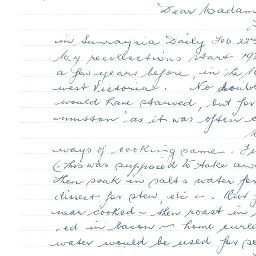 "Dear Madam
in Sunraysia Daily Feb 22
my recollections start 19
a few years before, in the
west Victoria. No doubt
would have starved, but for
mutton" as it was often
ways of cooking same.
(This was supposed to take aw
then soak in salt & water for
dissect for stew, etc -. But
near cooked - then roast in
-ed in bacon - home cure
water would be used for